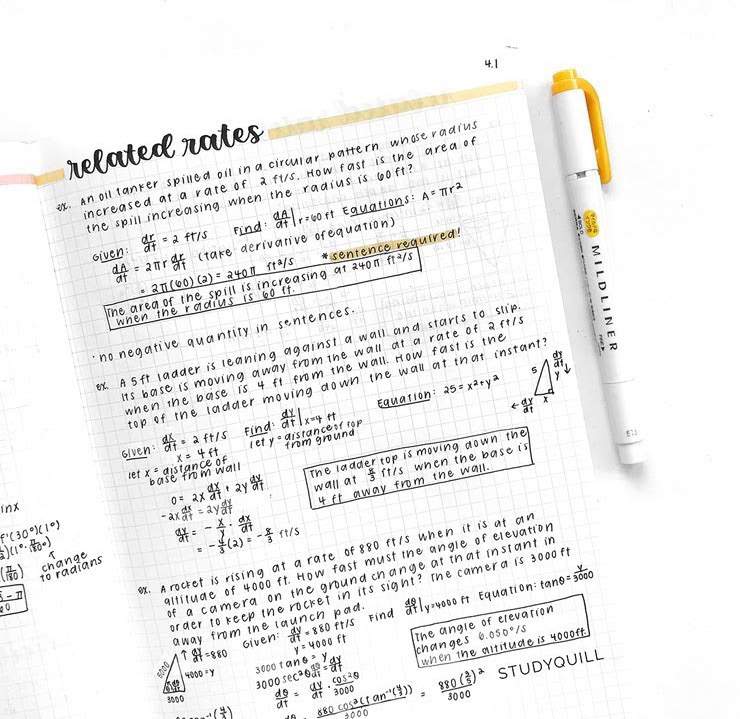 4.1
related rates
ex. An oil tanker spilled oil in a circular pattern whose radius
increased at a rate of 2 ft/s. How fast is the area of
the spill increasing when the radius is 60 ft?
Given: dr/dt = 2 ft/s Find: dA/dt | r=60 ft Equations: A = πr²
dA/dt = 2πr dr/dt (take derivative of equation)
= 2π(60)(2) = 240π ft²/s *sentence required!
The area of the spill is increasing at 240π ft²/s
when the radius is 60 ft.
· no negative quantity in sentences.
ex. A 5 ft ladder is leaning against a wall and starts to slip.
Its base is moving away from the wall at a rate of 2 ft/s
when the base is 4 ft from the wall. How fast is the
top of the ladder moving down the wall at that instant?
Given: dx/dt = 2 ft/s Find: dy/dt | x=4 ft Equation: 25 = x²+y²
x = 4 ft let y = distance of top
from ground
let x = distance of
base from wall
5 dy/dt y ↓
← dx/dt x
0 = 2x dx/dt + 2y dy/dt
-2x dx/dt = 2y dy/dt
dy/dt = - x/y · dx/dt
= - 4/3 (2) = - 8/3 ft/s
The ladder top is moving down the
wall at 8/3 ft/s when the base is
4 ft away from the wall.
ex. A rocket is rising at a rate of 880 ft/s when it is at an
altitude of 4000 ft. How fast must the angle of elevation
of a camera on the ground change at that instant in
order to keep the rocket in its sight? The camera is 3000 ft
away from the launch pad.
Given: dy/dt = 880 ft/s Find dθ/dt | y=4000 ft Equation: tanθ = y/3000
y = 4000 ft
↑ dy/dt = 880
5000 4000 = y
dθ/dt
3000
3000 tanθ = y
3000 sec²θ dθ/dt = dy/dt
dθ/dt = dy/dt · cos²θ/3000
880 cos²(tan⁻¹(4/3))/3000 = 880(3/5)²/3000
The angle of elevation
changes 6.050°/s
when the altitude is 4000ft.
STUDYQUILL
inx
f'(30°)(1°)
(1°· π/180°)
(π/180) ↑ change
to radians
MILDLINER